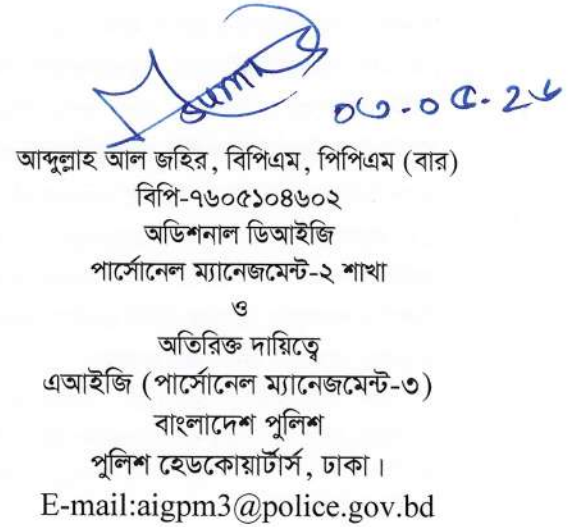 Sumi
০৩-০৫-২৬
আব্দুল্লাহ আল জহির, বিপিএম, পিপিএম (বার)
বিপি-৭৬০৫১০৪৬০২
অডিশনাল ডিআইজি
পার্সোনেল ম্যানেজমেন্ট-২ শাখা
ও
অতিরিক্ত দায়িত্বে
এআইজি (পার্সোনেল ম্যানেজমেন্ট-৩)
বাংলাদেশ পুলিশ
পুলিশ হেডকোয়ার্টার্স, ঢাকা।
E-mail:aigpm3@police.gov.bd